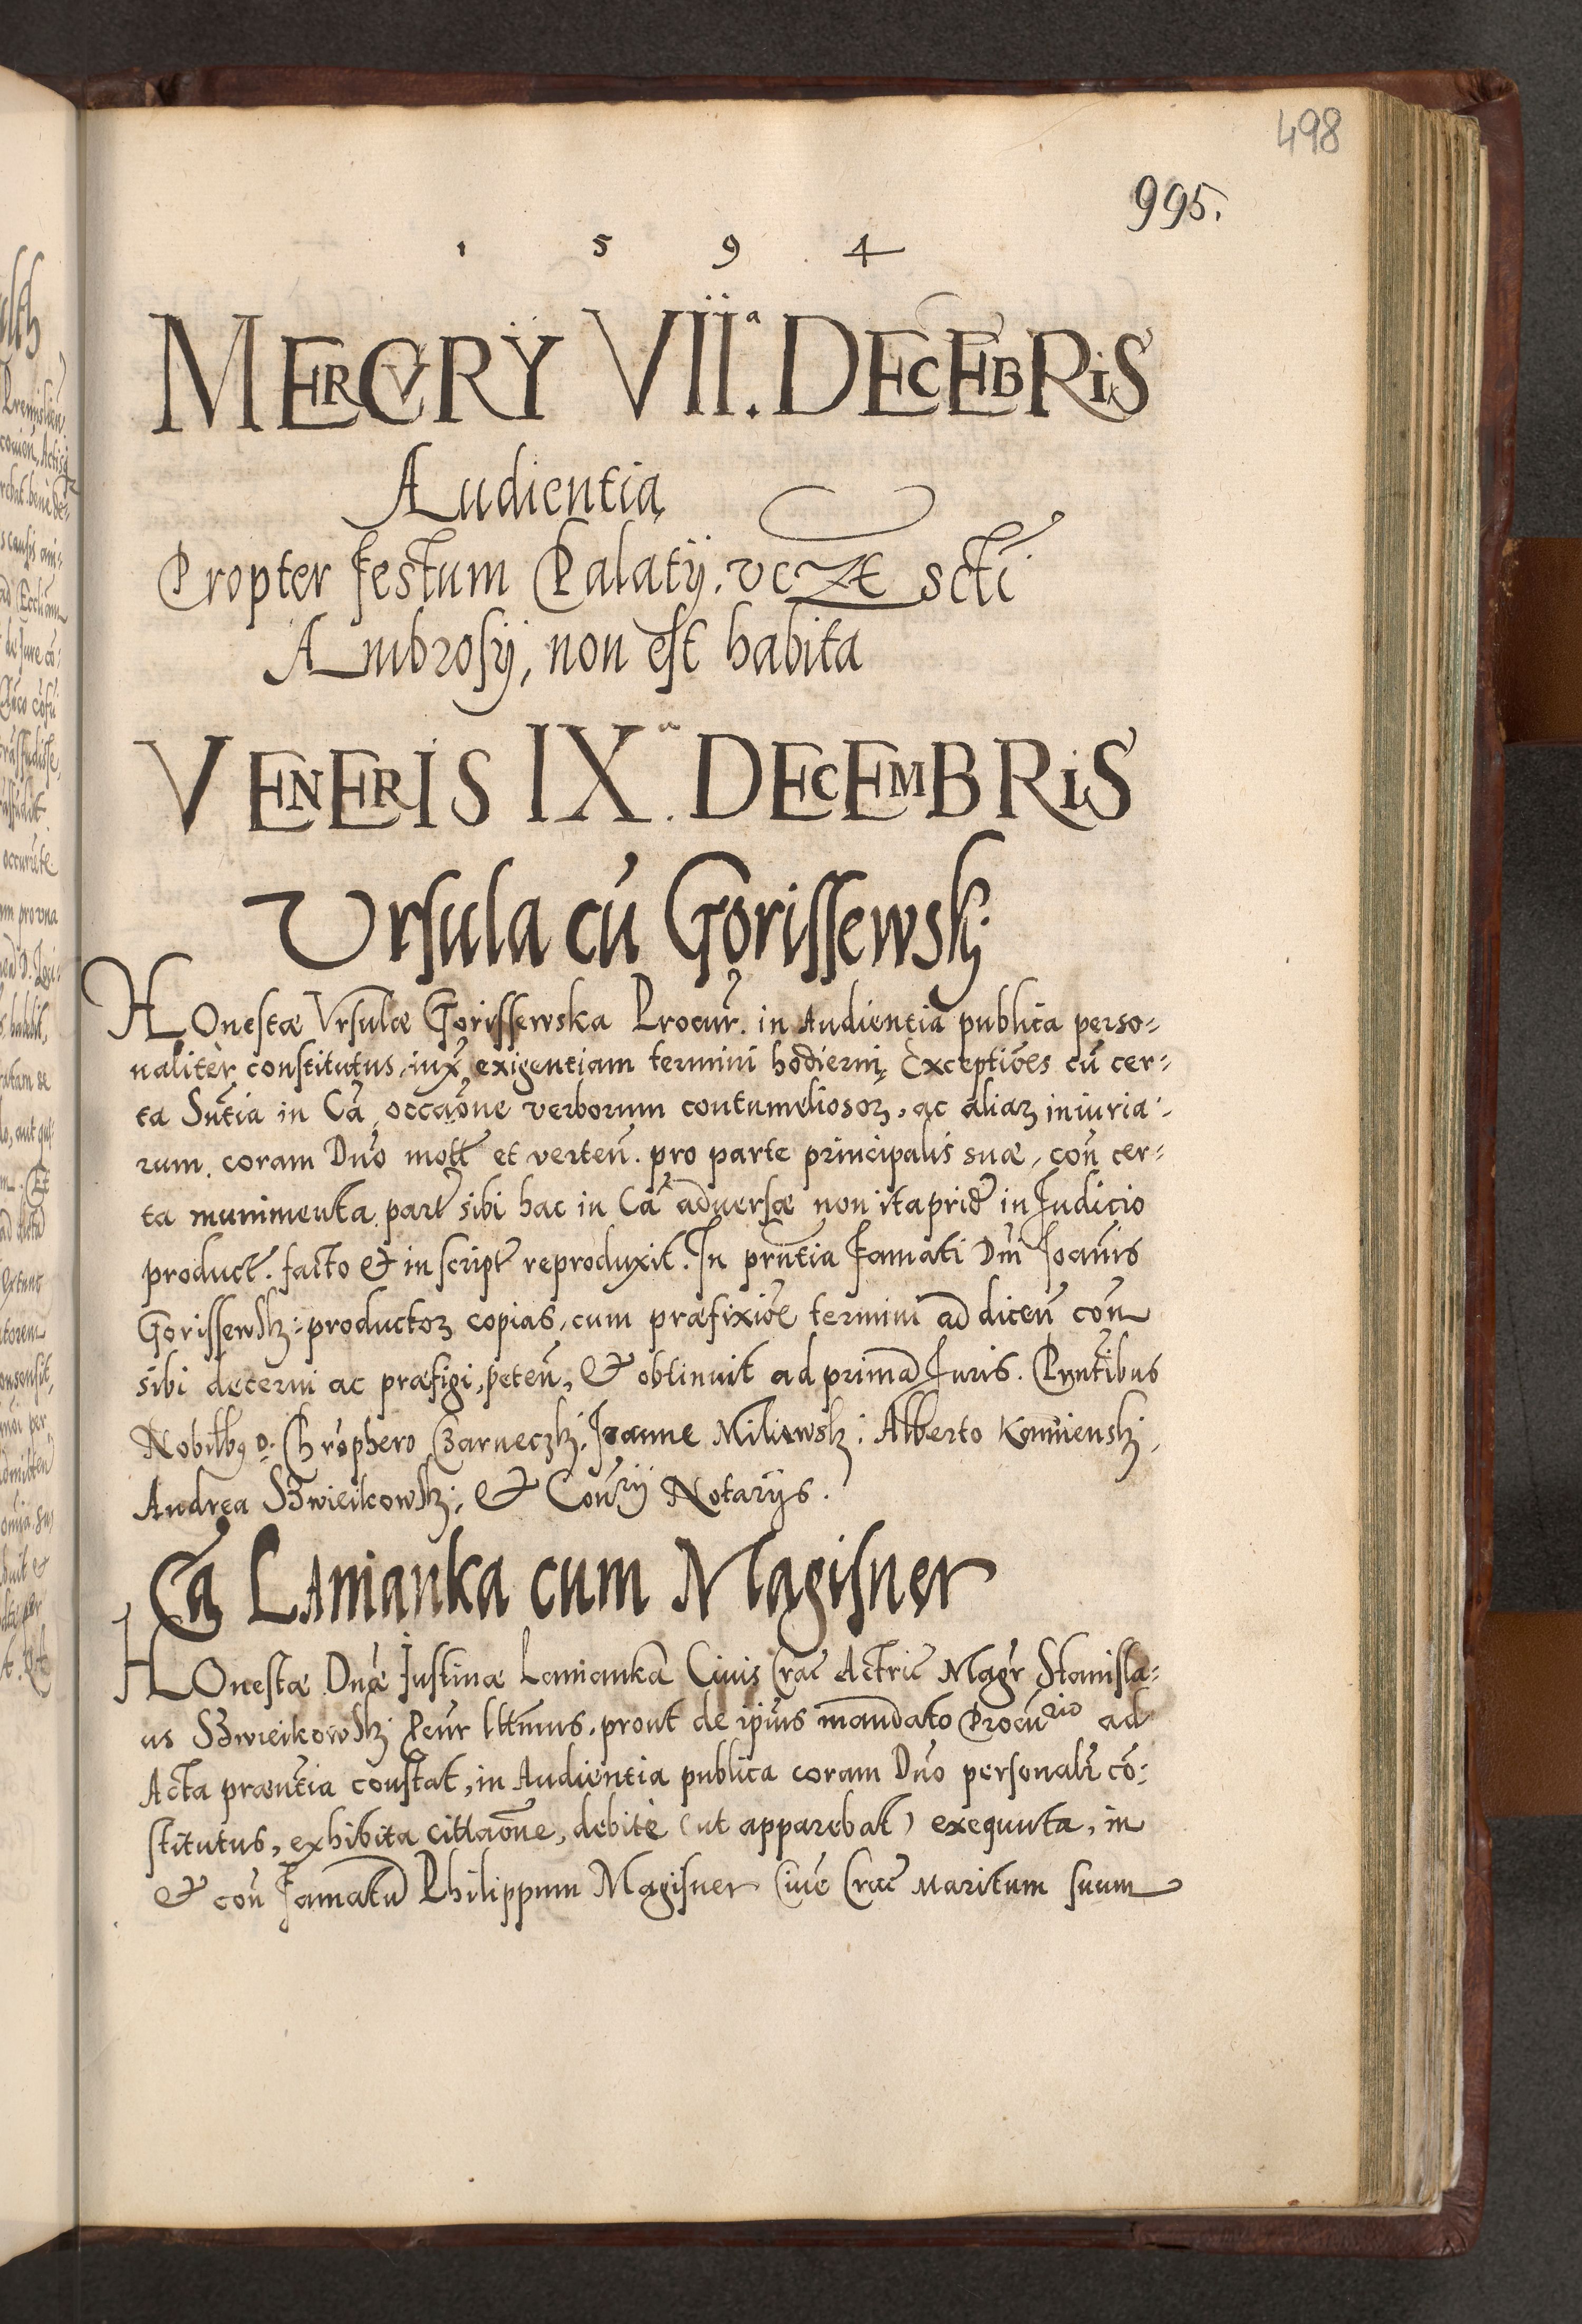 498
995.
1 5 9 4
MERCVRY VII.ª DECEBRIS
Audientia
Propter festum Palatÿ. vczt scti
Ambrosÿ, non est habita
VENERIS IX.ª DECEMBRIS
Ursula cū Gorissewsky
HOnestæ Vrsulæ Gorissewska Procur̃. in Audientia publica perso=
naliter constitutus, iux̃ exigentiam termini hodierni, Exceptiōes cū cer=
ta Sn̄tia in Cā occaōne verborum contumeliosoꝝ, ac aliaꝝ iniuria=
rum. coram Dn̄o mott̃ et verteñ. pro parte principalis suæ, coñ cer=
ta munimenta part̃ sibi hac in Cā adversæ non ita prid̃ in Judicio
product̃. facto & in script̃ reproduxit. In prn̄tia Famati Dn̄i Joañis
Gorissewsk: productoꝝ copias, cum præfixiōe termini ad diceñ coñ
sibi decerni ac præfigi, peteñ, & obtinuit ad primā Juris. Prn̄tibus
Nobilbꝰ D. Chrōphero Czarneczk: Joanne Miliewsk: Alberto Kamiensk:,
Andrea Szwieikowsk:, & Coñrÿ Notarÿs.
Cā LAmanka cum Magisner
HOnestæ Dn̄æ Justinæ Lamianka Civis Crac̃ Actric̃ Magr̃ Stanisla=
us Szwieikowsk: Pcur̃ lltm̄us, prout de ipius mandato Procurio ad
Acta præn̄tia constat, in Audientia publica coram Dn̄o personalr̃ cō=
stitutus, exhibita cittaōne, debitè (ut apparebat) exequuta, in
& coñ Famatū Philippum Magisner Civē Crac̃ Maritum suum